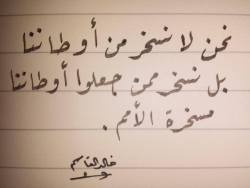 نحن لا نسخر من أوطاننا
بل نسخر ممن جعلوا أوطاننا
مسخرة الأمم .
خالد القاسم